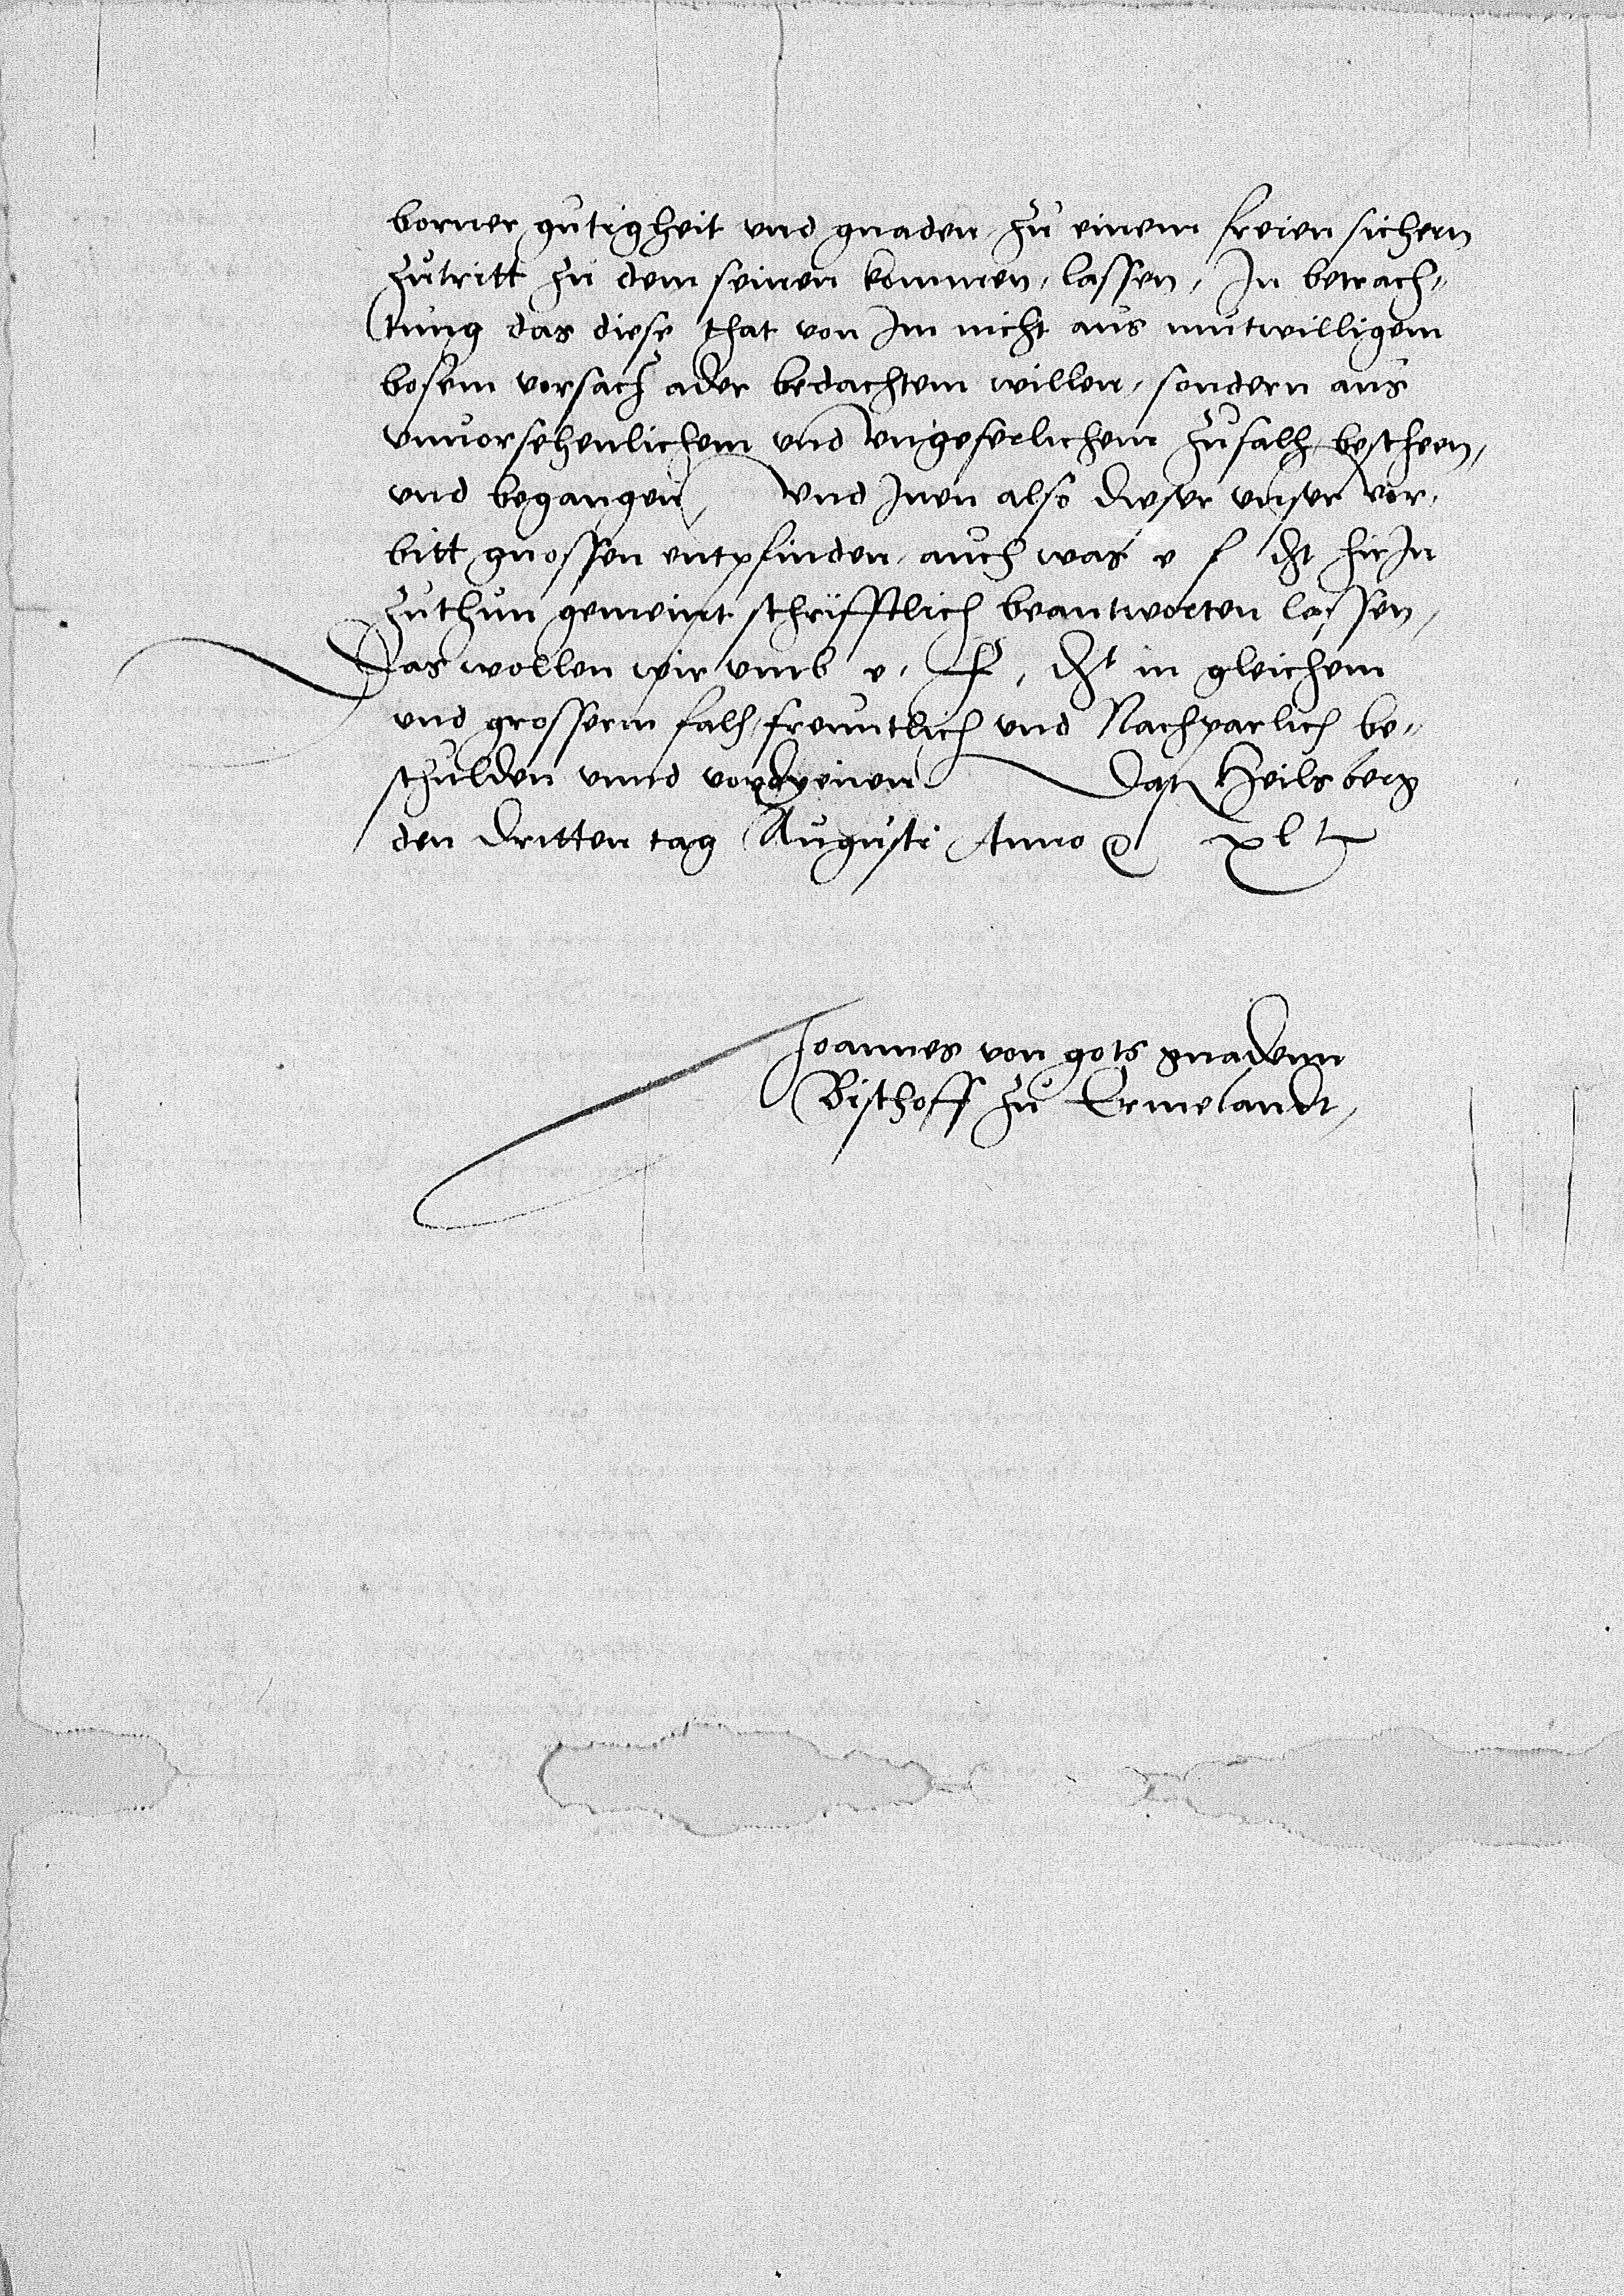 borner gutigheit vnd gnaden zu einem freien sichern
zutritt zu dem seinen kommen, lassen, In betrach-
tung das diese that von Im nicht aus mutwilligem
bosem vorsacz ader bedachtem willen, sondern aus
vnuorsehenlichem vnd vngeferlichem zufalh bescheen,
vnd begangen, vnd Inen also dieser vnser vor-
bitt gnossen entpfinden, auch was e f dt hirIn
zuthun gemeint schrifftlich beantworten lassen,
Das wollen wir vmb e, f, dt in gleichem
vnd grosserm falh, freuntlich vnd Nachparlich be-
schulden vnnd vordyenen Dat Heilsberg
den dritten tag Augusti Anno xl
Joannes von gots gnadenn
Bischoff zu Ermelandt,